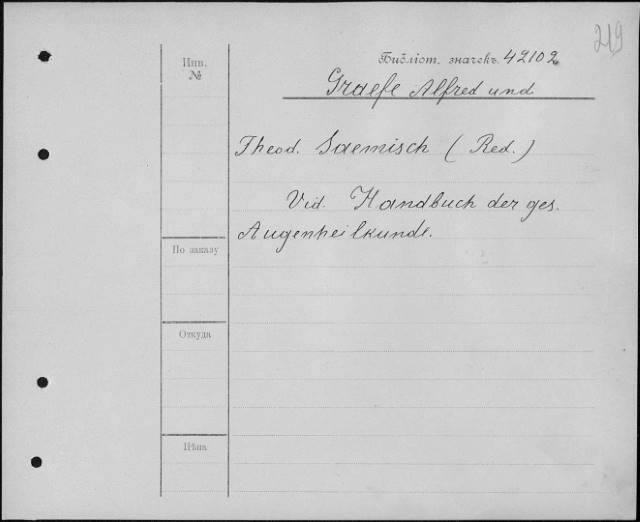 219
Инв.
№
Библіот. значекъ 42102
Graefe Alfred und
Theod. Saemisch (Red.)
Vid. Handbuch der ges.
Augenheilkunde.
По заказу
Откуда
Цѣна